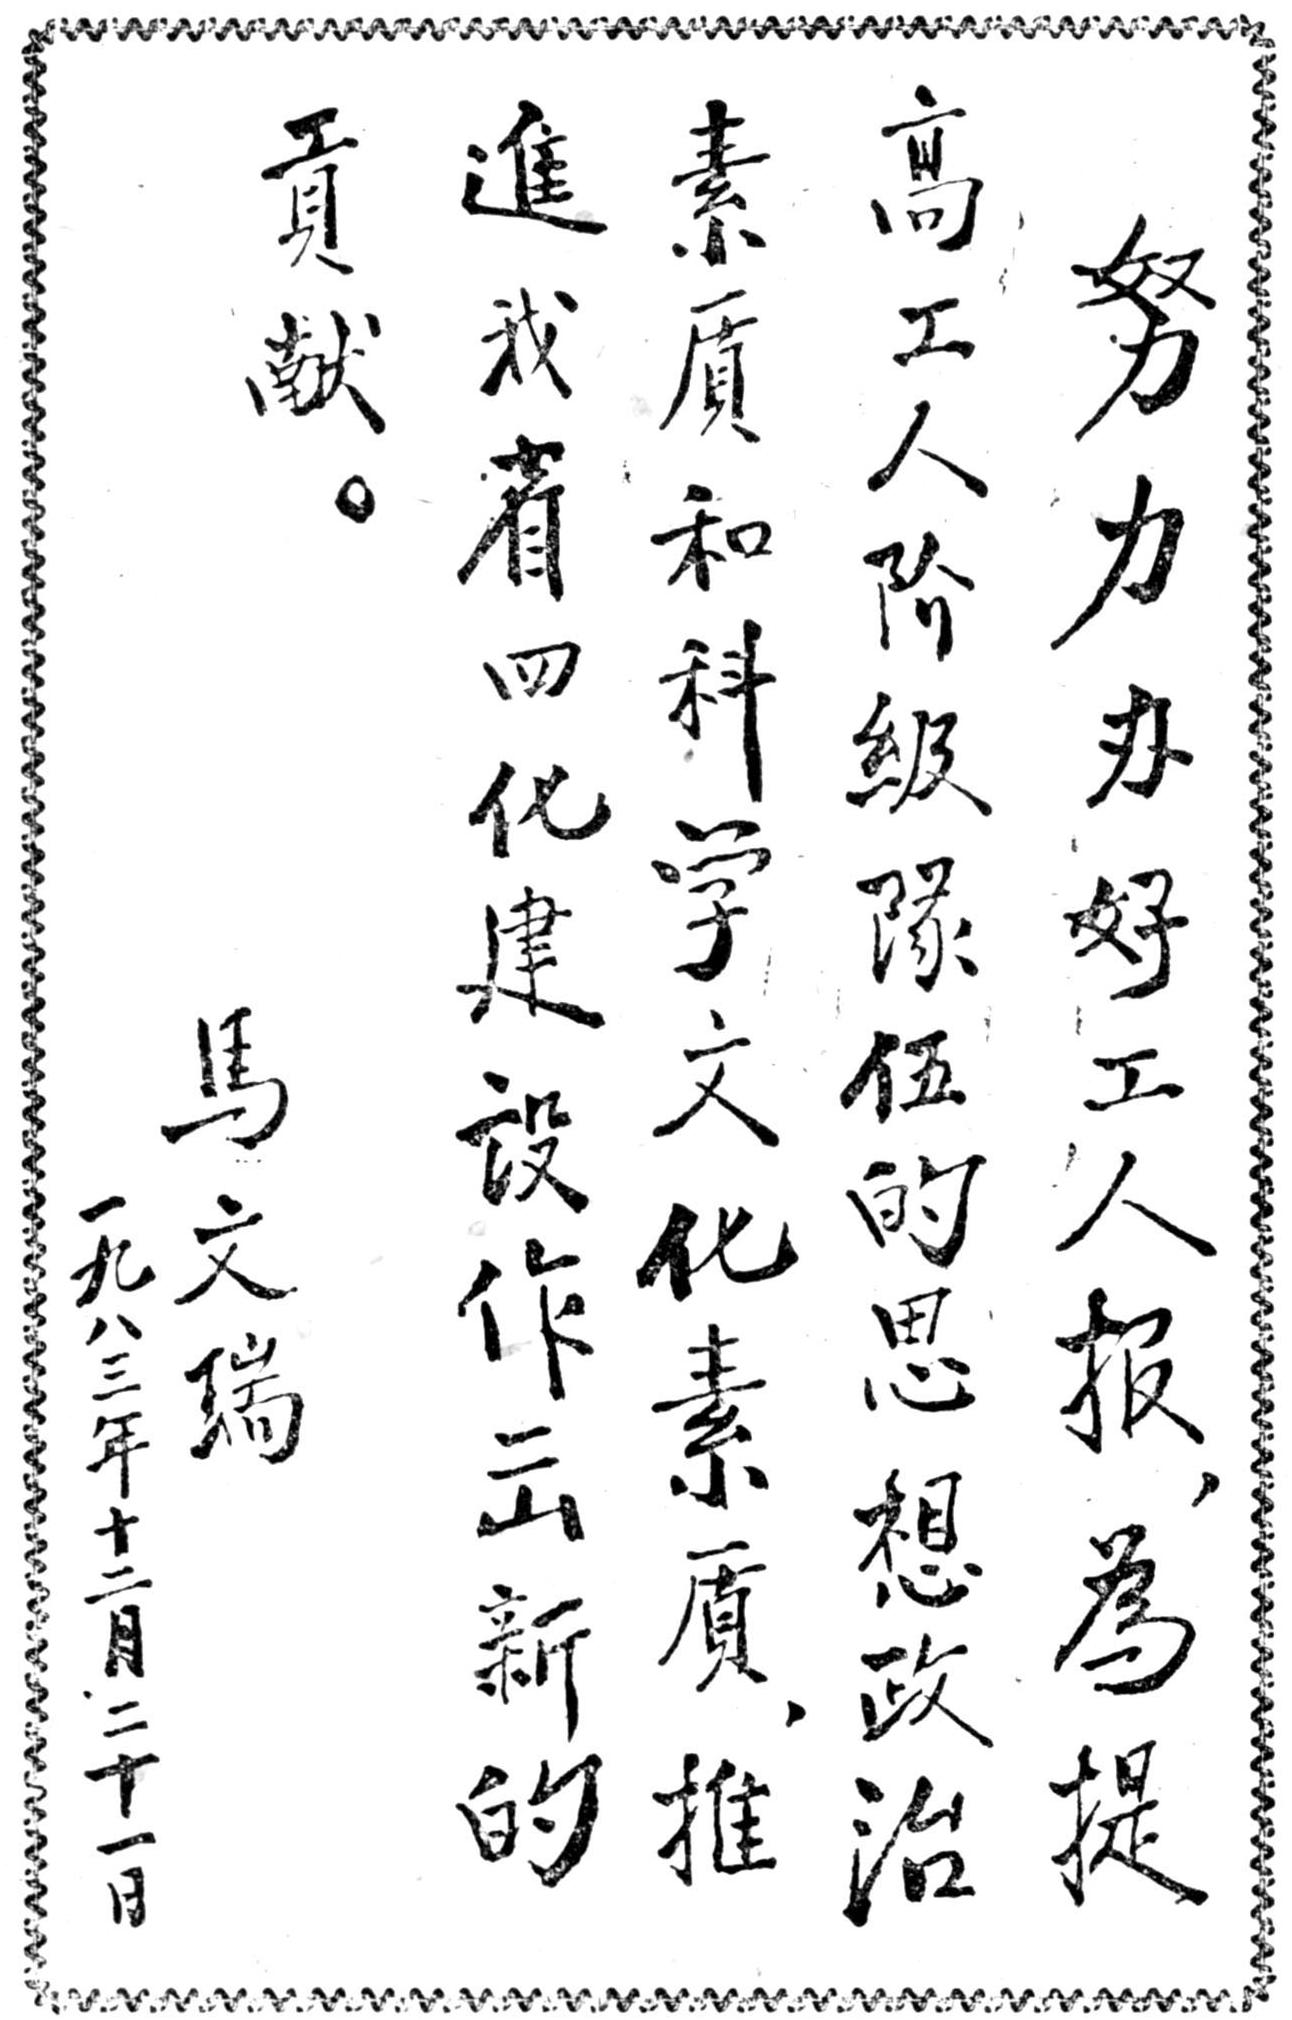 努力办好工人报，為提
高工人阶級隊伍的思想政治
素质和科学文化素质，推
進我省四化建設作出新的
貢献。
馬文瑞
一九八三年十二月二十一日